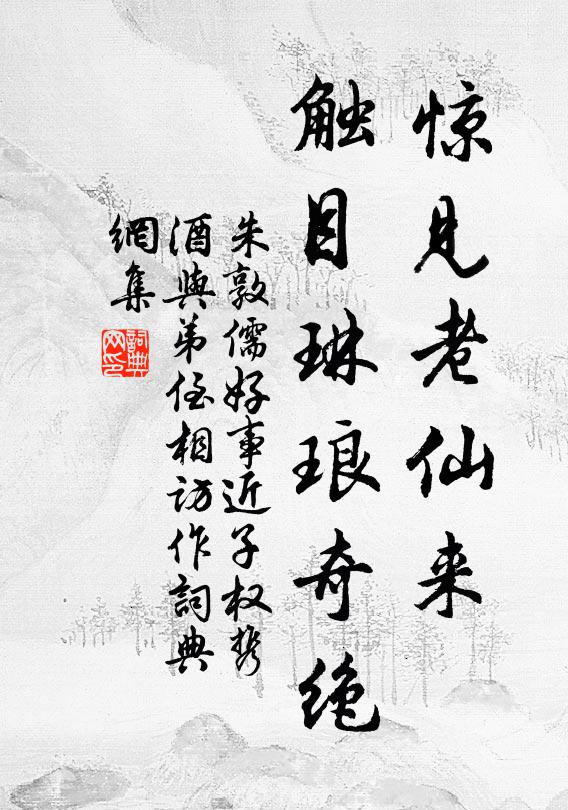 惊见老仙来
触目琳琅奇绝
朱敦儒好事近子权携
酒與弟侄相訪作詞典
網集
詞典
网印